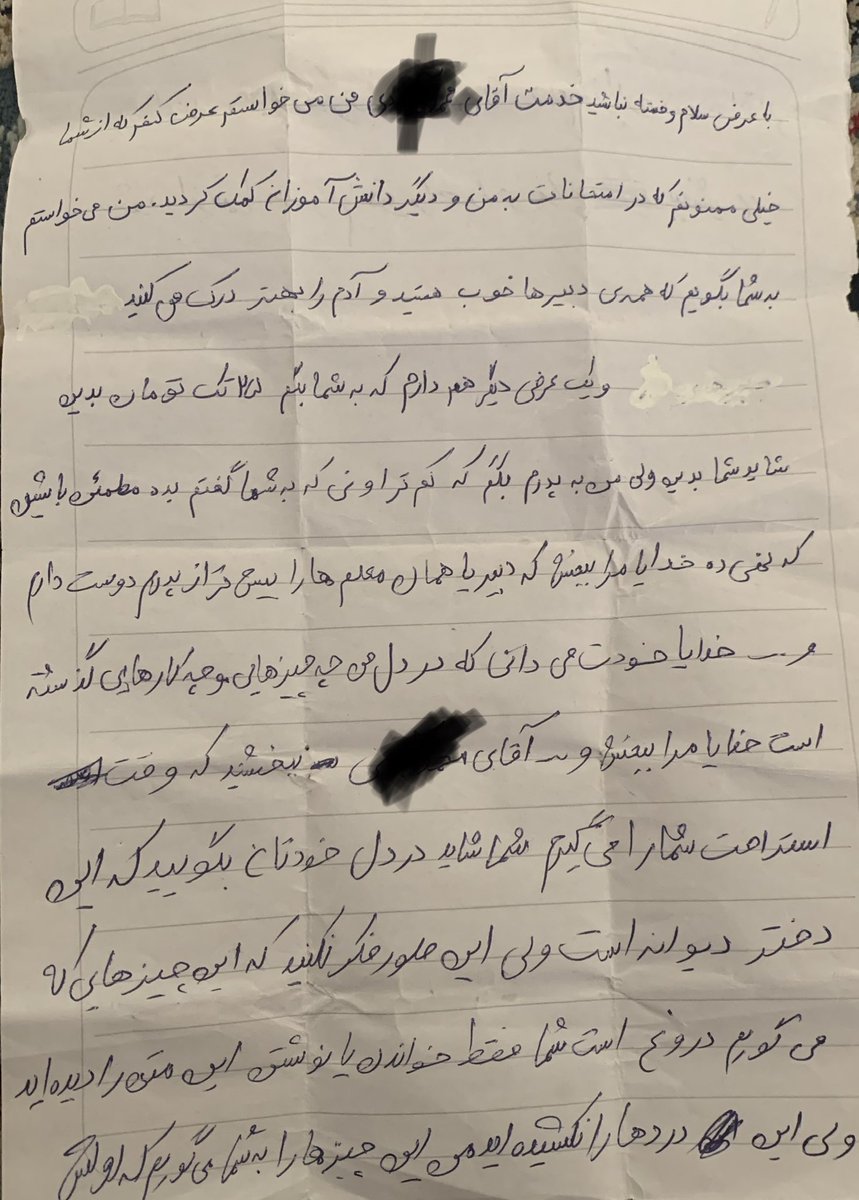 با عرض سلام و خسته نباشید خدمت آقای من می خواستم عرض کنم که از شما
خیلی ممنونم که در امتحانات به من و دیگر دانش آموزان کمک کردید. من می خواستم
به شما بگویم که همه ی دبیرها خوب هستید و آدم را بهتر درک می کنید
و یک عرض دیگر هم دارم که به شما بگم تک تومان بدین
شاید شما بدین ولی من به پدرم بگم که کم تر اونی که به شما گفتم بده مطمئن باشین
که نمی ده خدایا مرا ببخش که دبیر یا همان معلم ها را بیش تر از پدرم دوست دارم
و... خدایا خودت می دانی که در دل من چه چیزهایی و چه کارهایی گذشته
است خدایا مرا ببخش و... آقای ببخشید که وقت
استراحت شما را می گیرم شما شاید در دل خودتان بگویید که این
دختر دیوانه است ولی این طور فکر نکنید که این چیزهایی که
می گویم دروغ است شما فقط خواندن یا نوشتن این متن را دیده اید
ولی این دردها را نکشیده اید من این چیزها را به شما می گویم که اولش